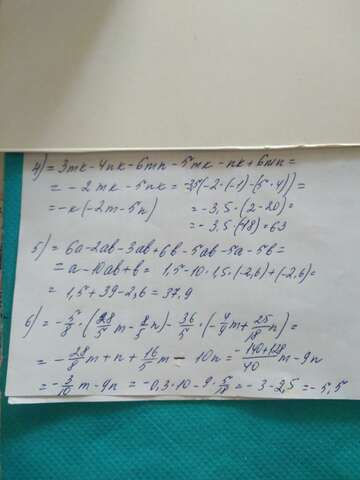 4) = 3mk - 4nk - 6mn - 5mk - nk + 6mn =
= - 2mk - 5nk = -3,5(-2·(-1) - (5·4)) =
= -k(-2m - 5n) = -3,5·(2-20) =
= -3,5·(-18) = 63
5) = 6a - 2ab - 3ab + 6b - 5ab - 5a - 5b =
= a - 10ab + b = 1,5 - 10·1,5·(-2,6) + (-2,6) =
= 1,5 + 39 - 2,6 = 37,9
6) = -5/8·(28/5 m - 8/5 n) - 36/5·(-4/9 m + 25/18 n) =
= -28/8 m + n + 16/5 m - 10n = -140+128/40 m - 9n
= -3/10 m - 9n = -0,3·10 - 9·5/18 = -3 - 2,5 = -5,5